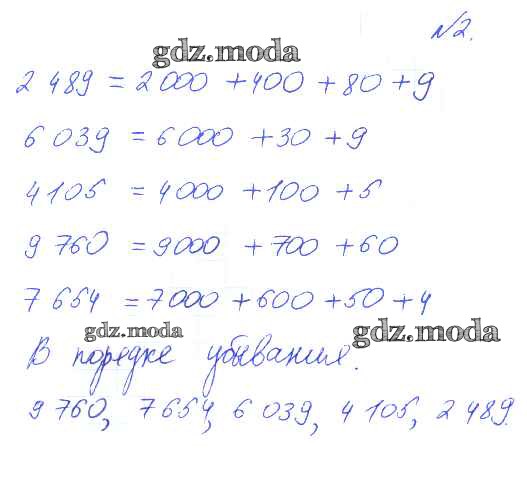 №2.
gdz.moda
2 489 = 2 000 + 400 + 80 + 9
6 039 = 6 000 + 30 + 9
4 105 = 4 000 + 100 + 5
9 760 = 9000 + 700 + 60
7 654 = 7 000 + 600 + 50 + 4
gdz.moda
gdz.moda
В порядке убывания.
9 760, 7 654, 6 039, 4 105, 2 489.